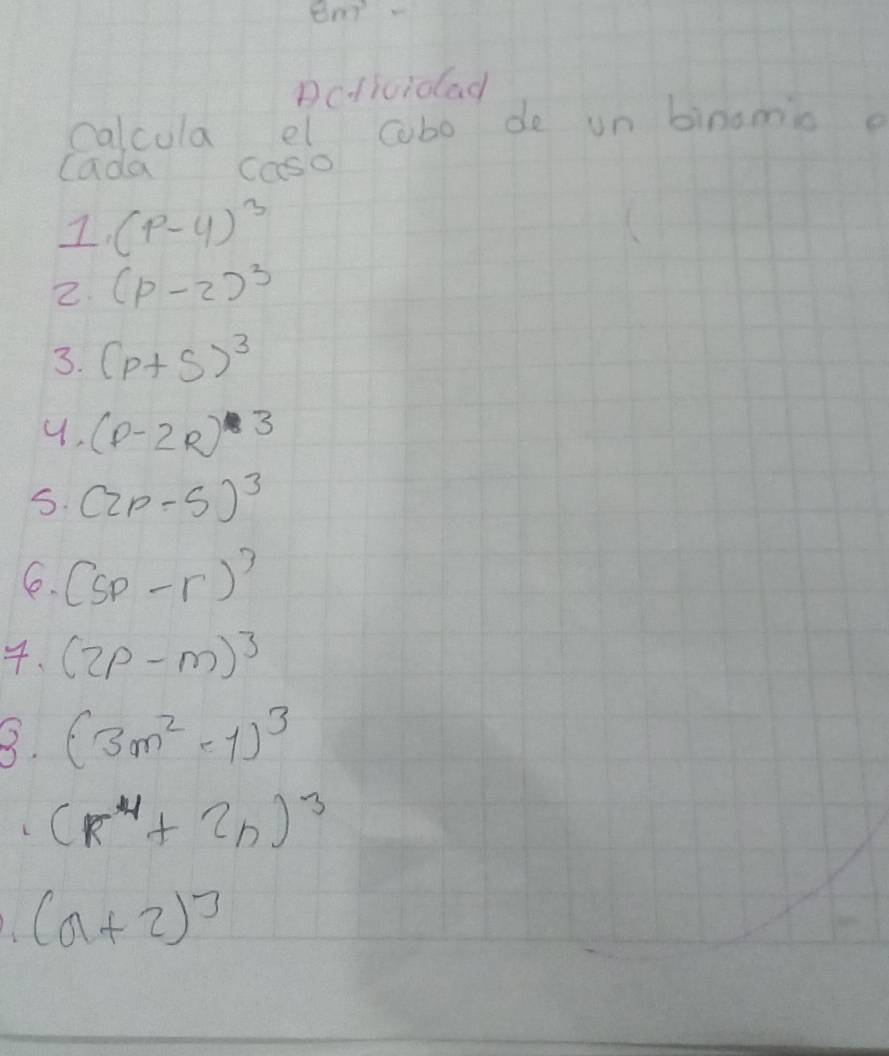 8m³ -
Actividad
Calcula el cubo de un binomio e
cada caso
1. (p-4)³
2. (p-2)³
3. (p+5)³
4. (p-2R) 3
5. (2p-5)³
6. (5p-r)³
7. (2p-m)³
8. (3m²-1)³
. (R⁴+2n)³
. (a+2)³